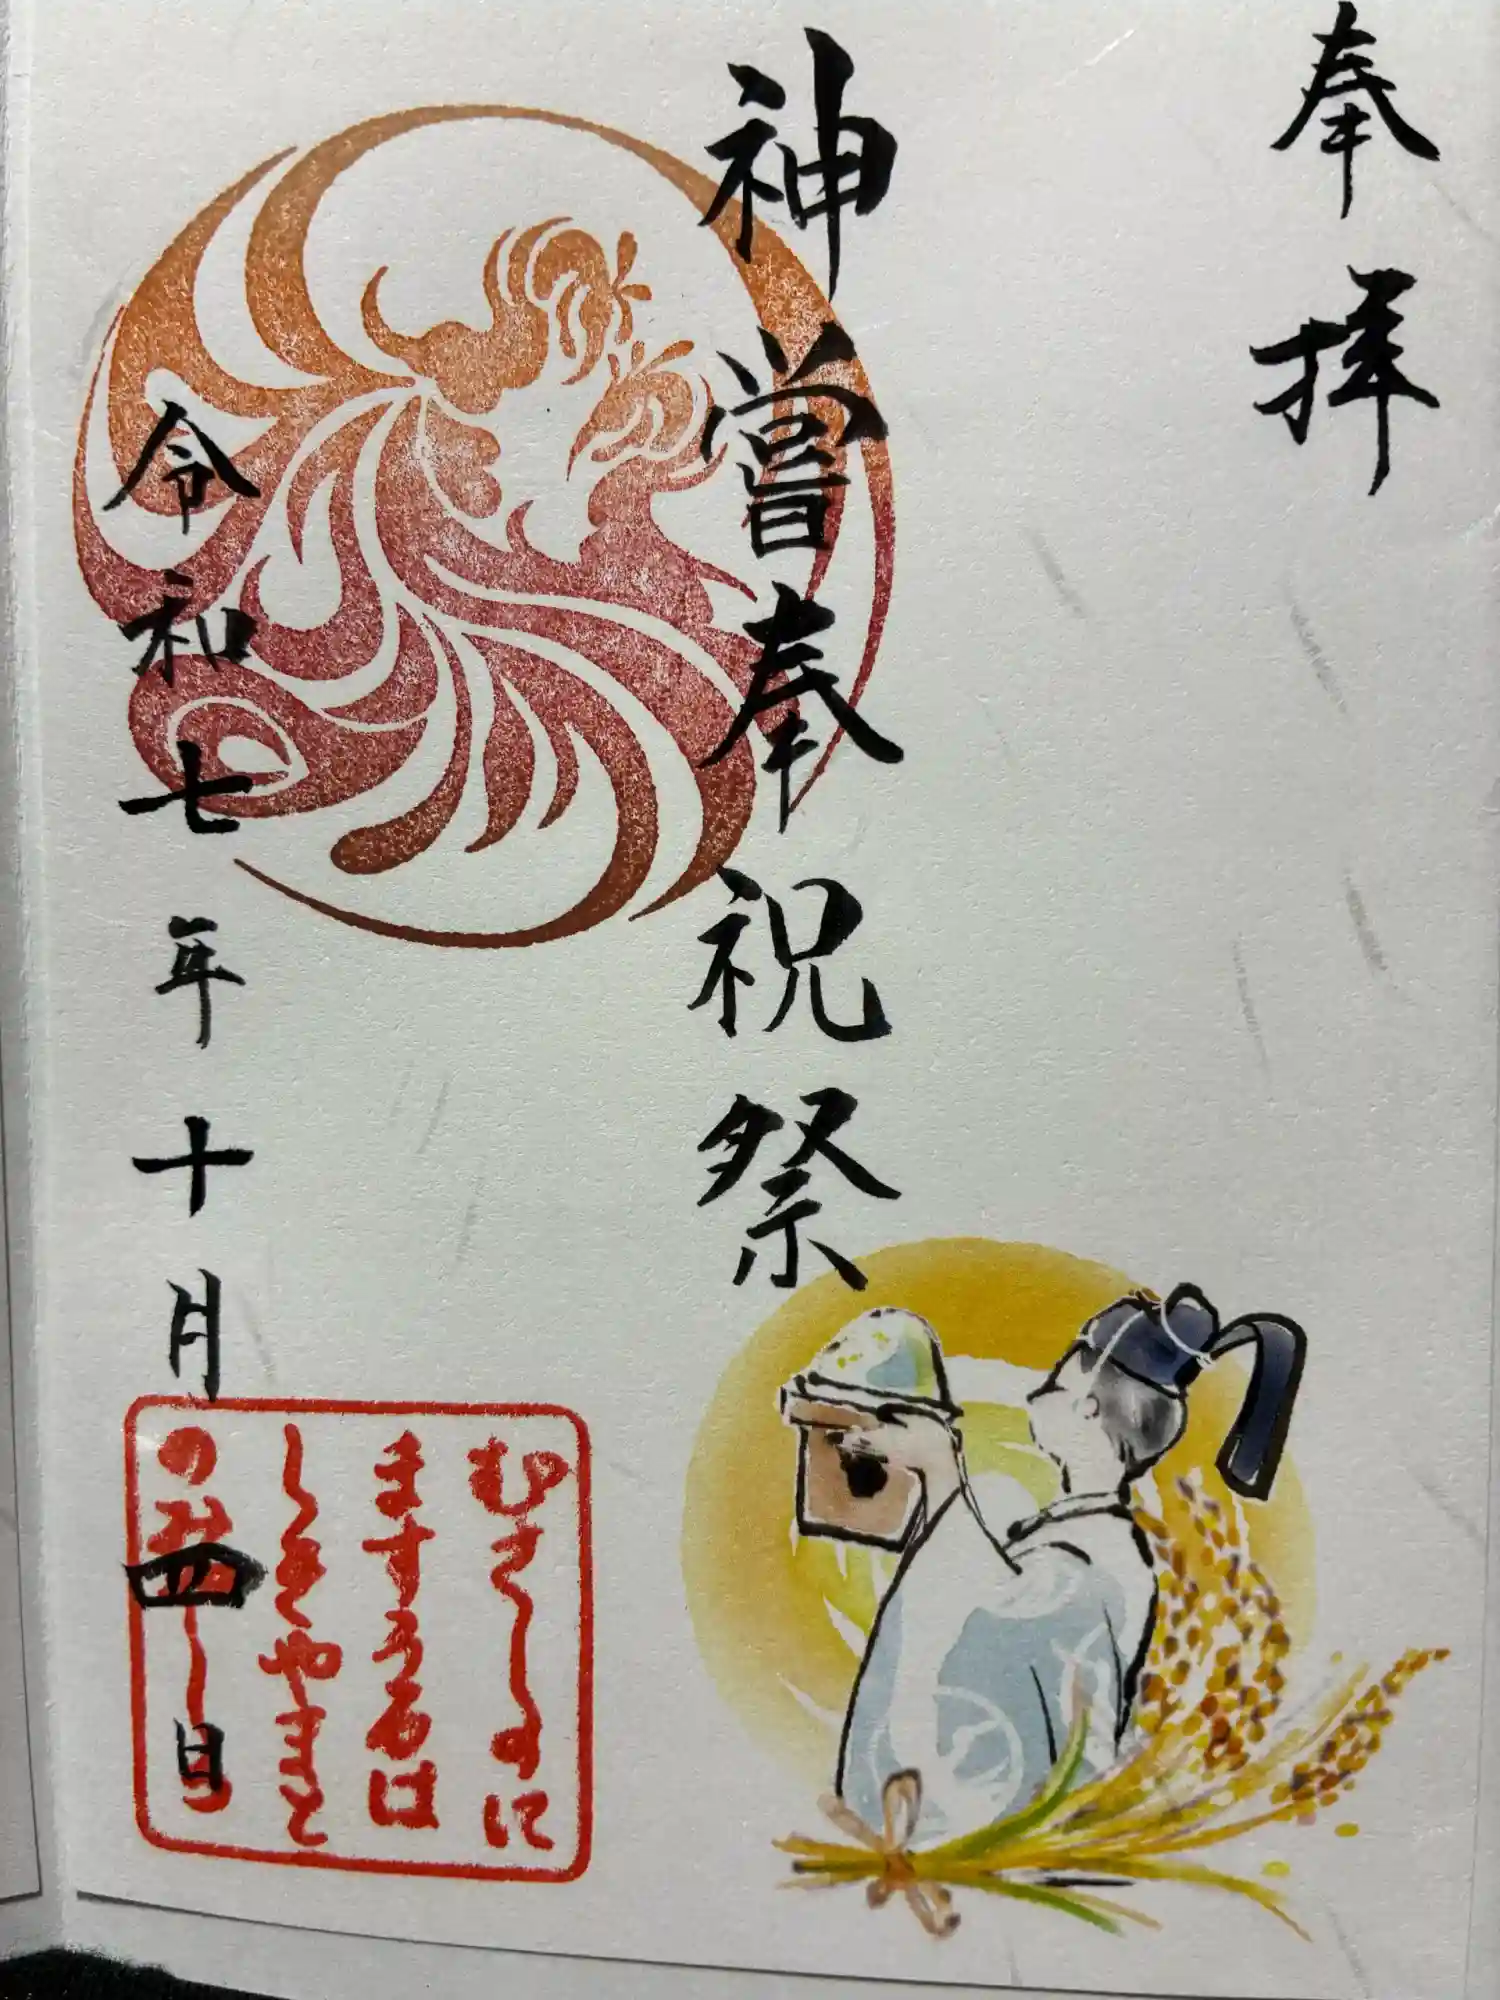 奉拝
神嘗奉祝祭
令和七年十月四日
むさしのに
ますうるは
しきやまと